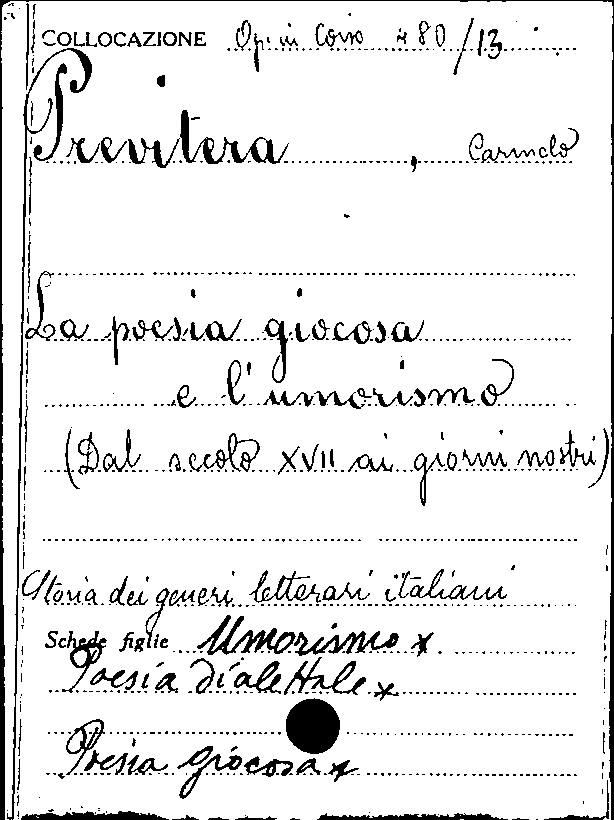 COLLOCAZIONE Op. in Corso 480/13
Previtera, Carmelo
La poesia giocosa
e l'umorismo
(Dal secolo XVII ai giorni nostri)
Storia dei generi letterari italiani
Schede figlie Umorismo x
Poesia dialettale x
Poesia giocosa x